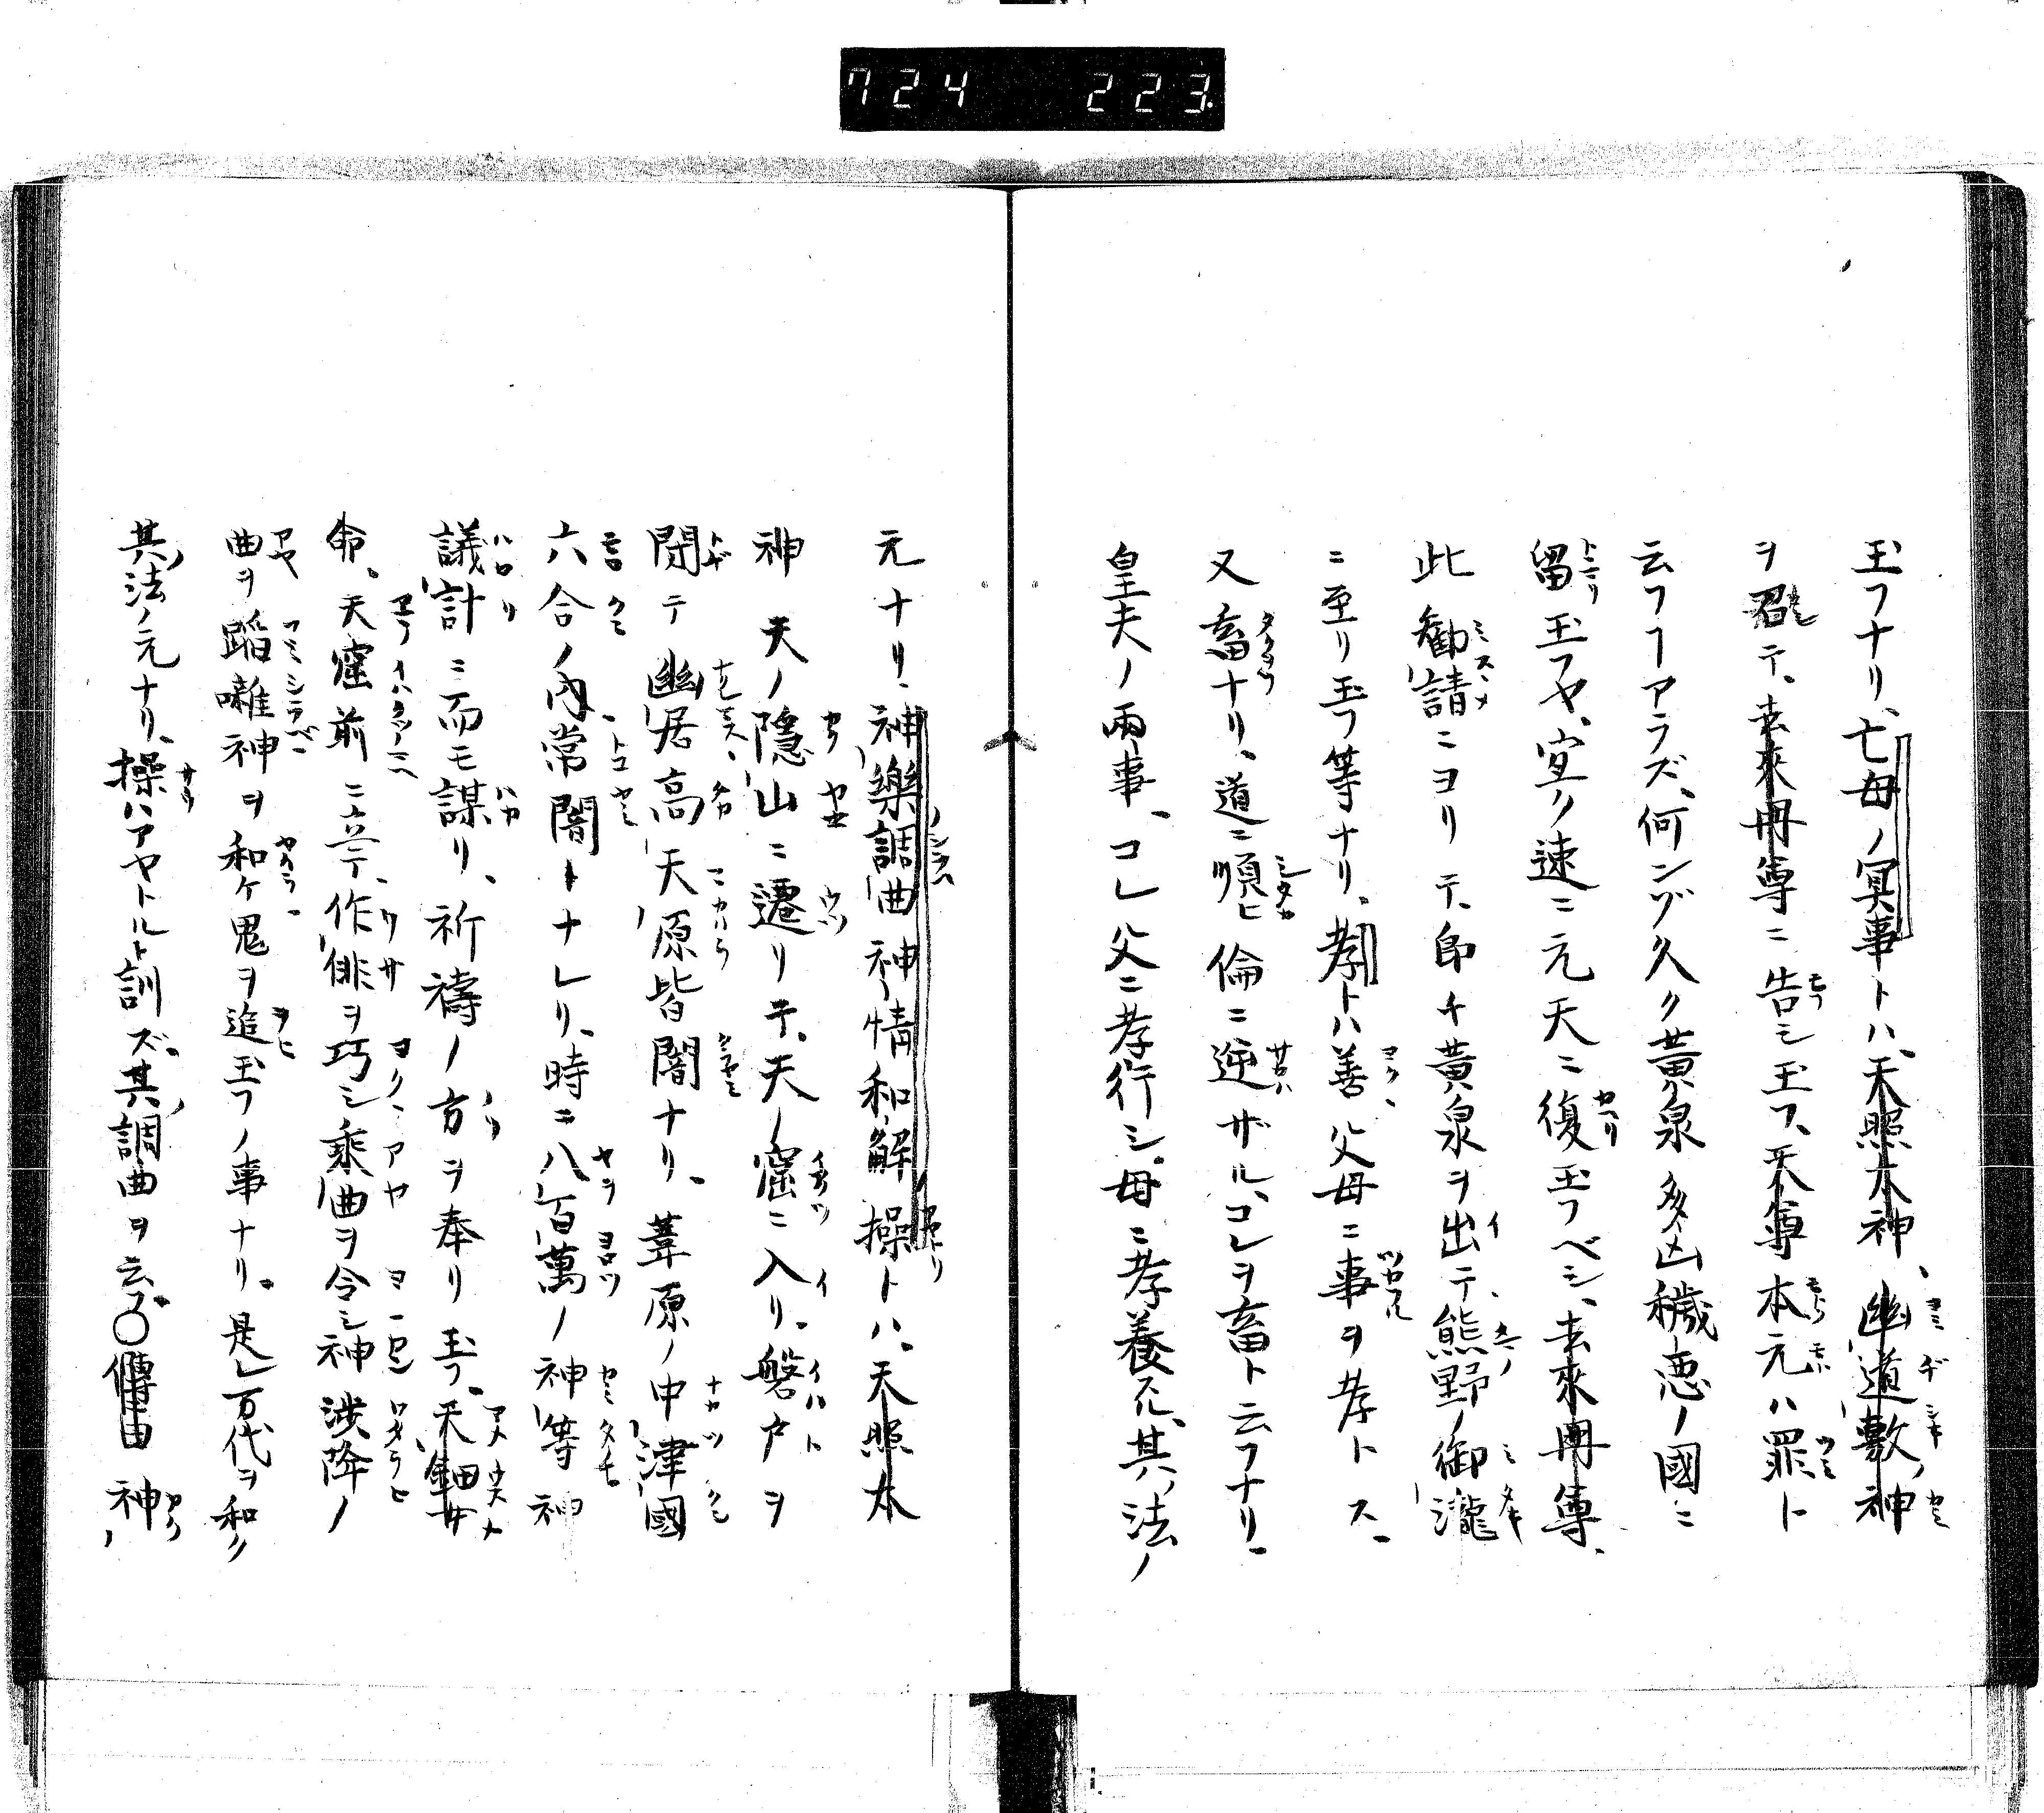 724 223.
玉フナリ、亡母ノ冥事トハ、天照太神、幽道敷ノ神
ヲ召テ、去來冊尊ニ告シ玉ス、天尊本元ハ罪ト
云フヿアラズ、何ンゾ久ク黄泉多凶穢悪ノ國ニ
留玉フヤ、宜ク速ニ元天ニ復玉フベシ、去來冊尊、
此勸請ニヨリテ、即チ黄泉ヲ出テ、熊野ノ御瀧
ニ至リ玉フ等ナリ、孝トハ善父母ニ事ヲ孝トス、
又畜ナリ、道ニ順ヒ倫ニ逆ザル、コレヲ畜ト云フナリ、
皇夫ノ兩事、コレ父ニ孝行シ、母ニ孝養ス、其ノ法ノ
元ナリ、神樂調曲神ノ情和解ノ操トハ、天照太
神天ノ隱山ニ遷リテ、天ノ窟ニ入リ、磐戸ヲ
閇テ幽居高天原皆闇ナリ、葦原ノ中津國
六合ノ内常闇トナレリ、時ニ八百萬ノ神等神
議計ニ而モ謀リ、祈禱ノ方ヲ奉リ玉フ、天鈿女
命、天窟前ニ立テ、作俳ヲ巧シ乘曲ヲ令シ神渉降ノ
曲ヲ蹈囃神ヲ和ケ鬼ヲ追玉フノ事ナリ、是レ万代ヲ和ク
其ノ法ノ元ナリ、操ハアヤトルト訓ズ、其ノ調曲ヲ云フ、〇傳曰神